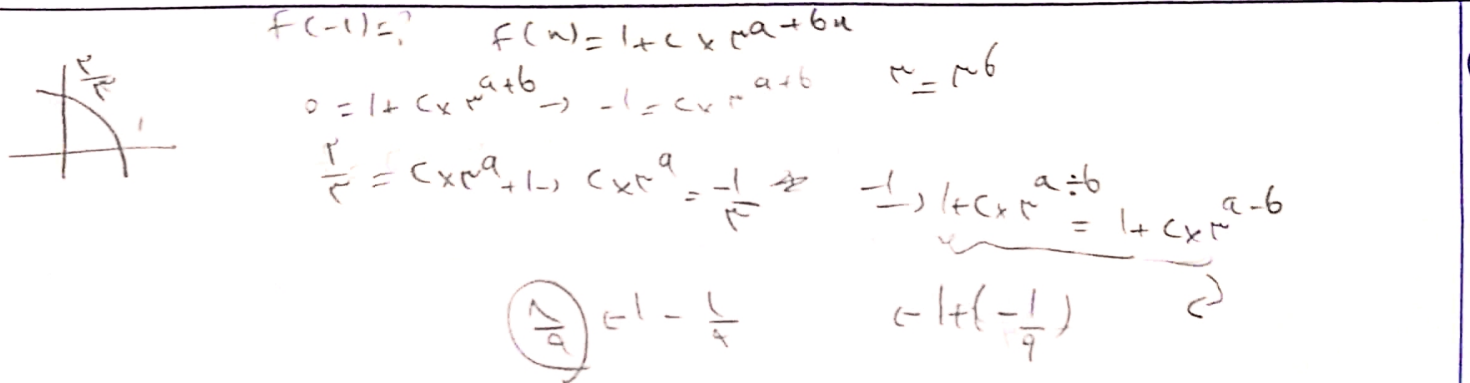 f(-1)=? f(x)=1+c×۳^a+bx
۲/۳ 1
0=1+c×۳^a+b → -1=c×۳^a+b ۳=۳^b
۲/۳=c×۳^a+1→ c×۳^a=-1/۳ -1→ 1+c×۳^a÷b = 1+c×۳^a-b
۸/۹ ←1-1/۹ ←1+(-1/9)